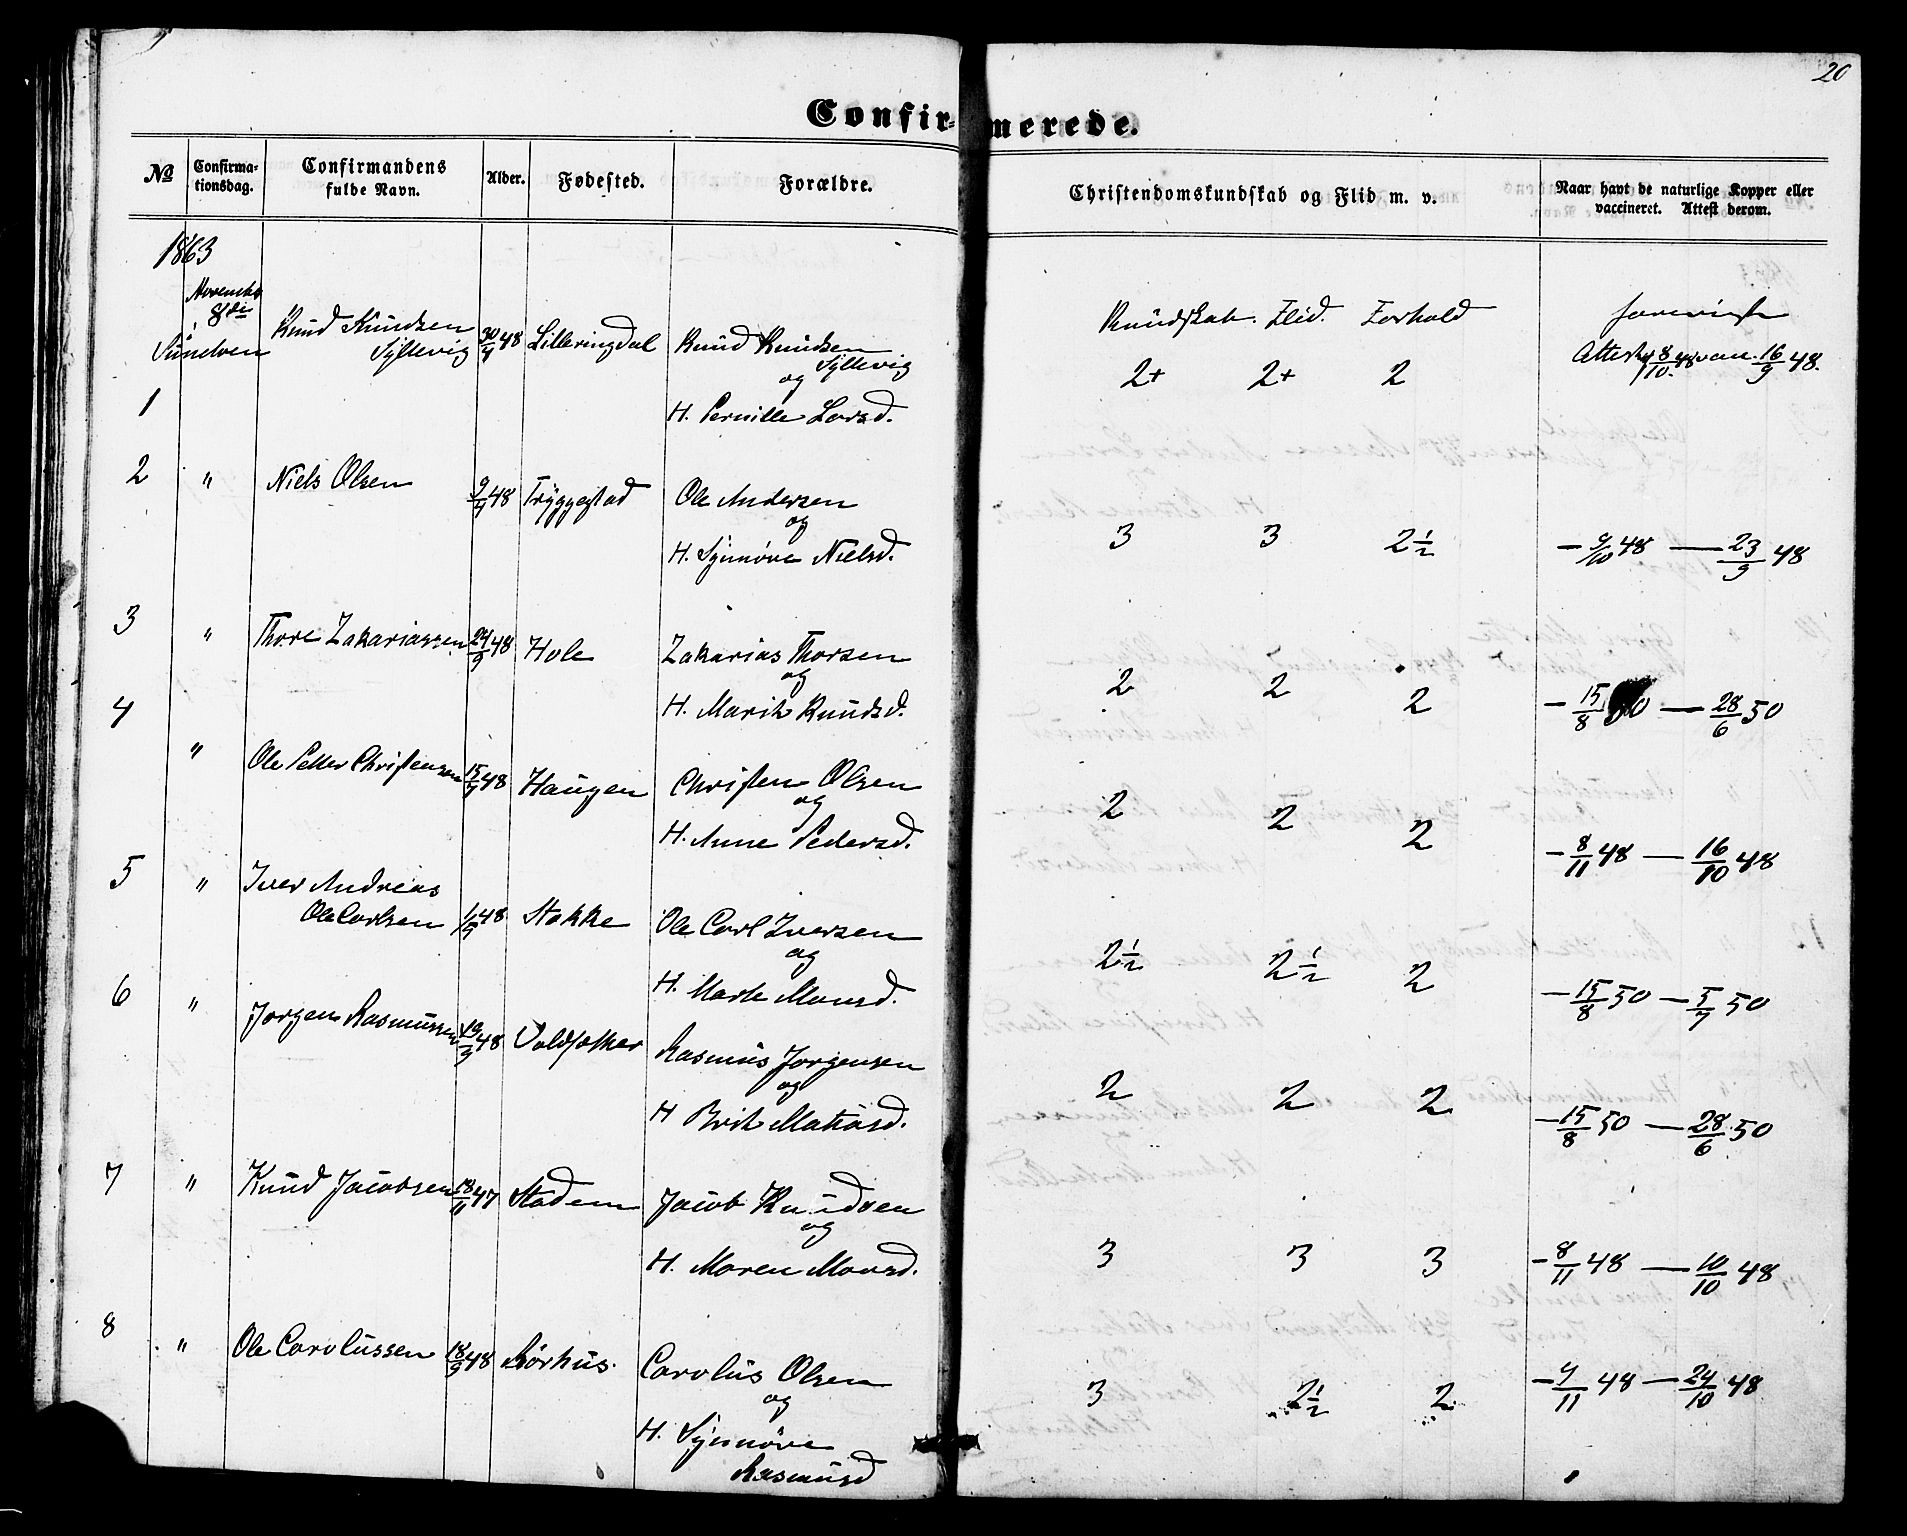 20
Confirmerede.
No
Confirmationsdag.
Confirmandens fulde Navn.
Alder.
Fødested.
Forældre.
Christendomskundskab og Flid m. v.
Naar havt de naturlige Kopper eller vaccineret. Attest derom.
1863
8de
Kundskab. Flid. Forhold
1 Knud Knudsen Syltevig 48 Lilleringdal Knud Knudsen Syltevig
og
H. Pernille Larsd.
2+ 2+ 2
Attest 8/10 48 vac. 16/9 48.
2 " Niels Olsen 48 Tryggestad Ole Andersen
og
H. Synnøve Nielsd.
3 3 2½
48 — 23/9 48
3 " Thore Zakariassen 24/9 48 Hole Zakarias Thorsen
og
H. Marit Knudsd.
2 2 2
- 15/8 50 — 28/6 50
4 " Ole Petter Christensen 48 Haugen Christen Olsen
og
H. Anne Pedersd.
2 2 2
- 8/11 48 — 16/10 48
5 " Iver Andreas
Ole Carlsen 48 Stokke Ole Carl Iversen
og
H. Marte Monsd.
2½ 2½ 2
- 15/8 50 — 5/7 50
6 " Jørgen Rasmussen 48 Rasmus Jørgensen
og
H Brit Matiasd.
2 2 2
- 15/8 50 — 28/6 50
7 " Knud Jacobsen 18/11 47 Stadem Jacob Knudsen
og
H. Maren Monsd.
3 3 3
- 8/11 48 — 10/10 48
8 " Ole Carolussen 18/9 48 Rørhus. Carolus Olsen
og
H. Synnøve
Rasmusd
3 2½ 2
48 — 24/10 48